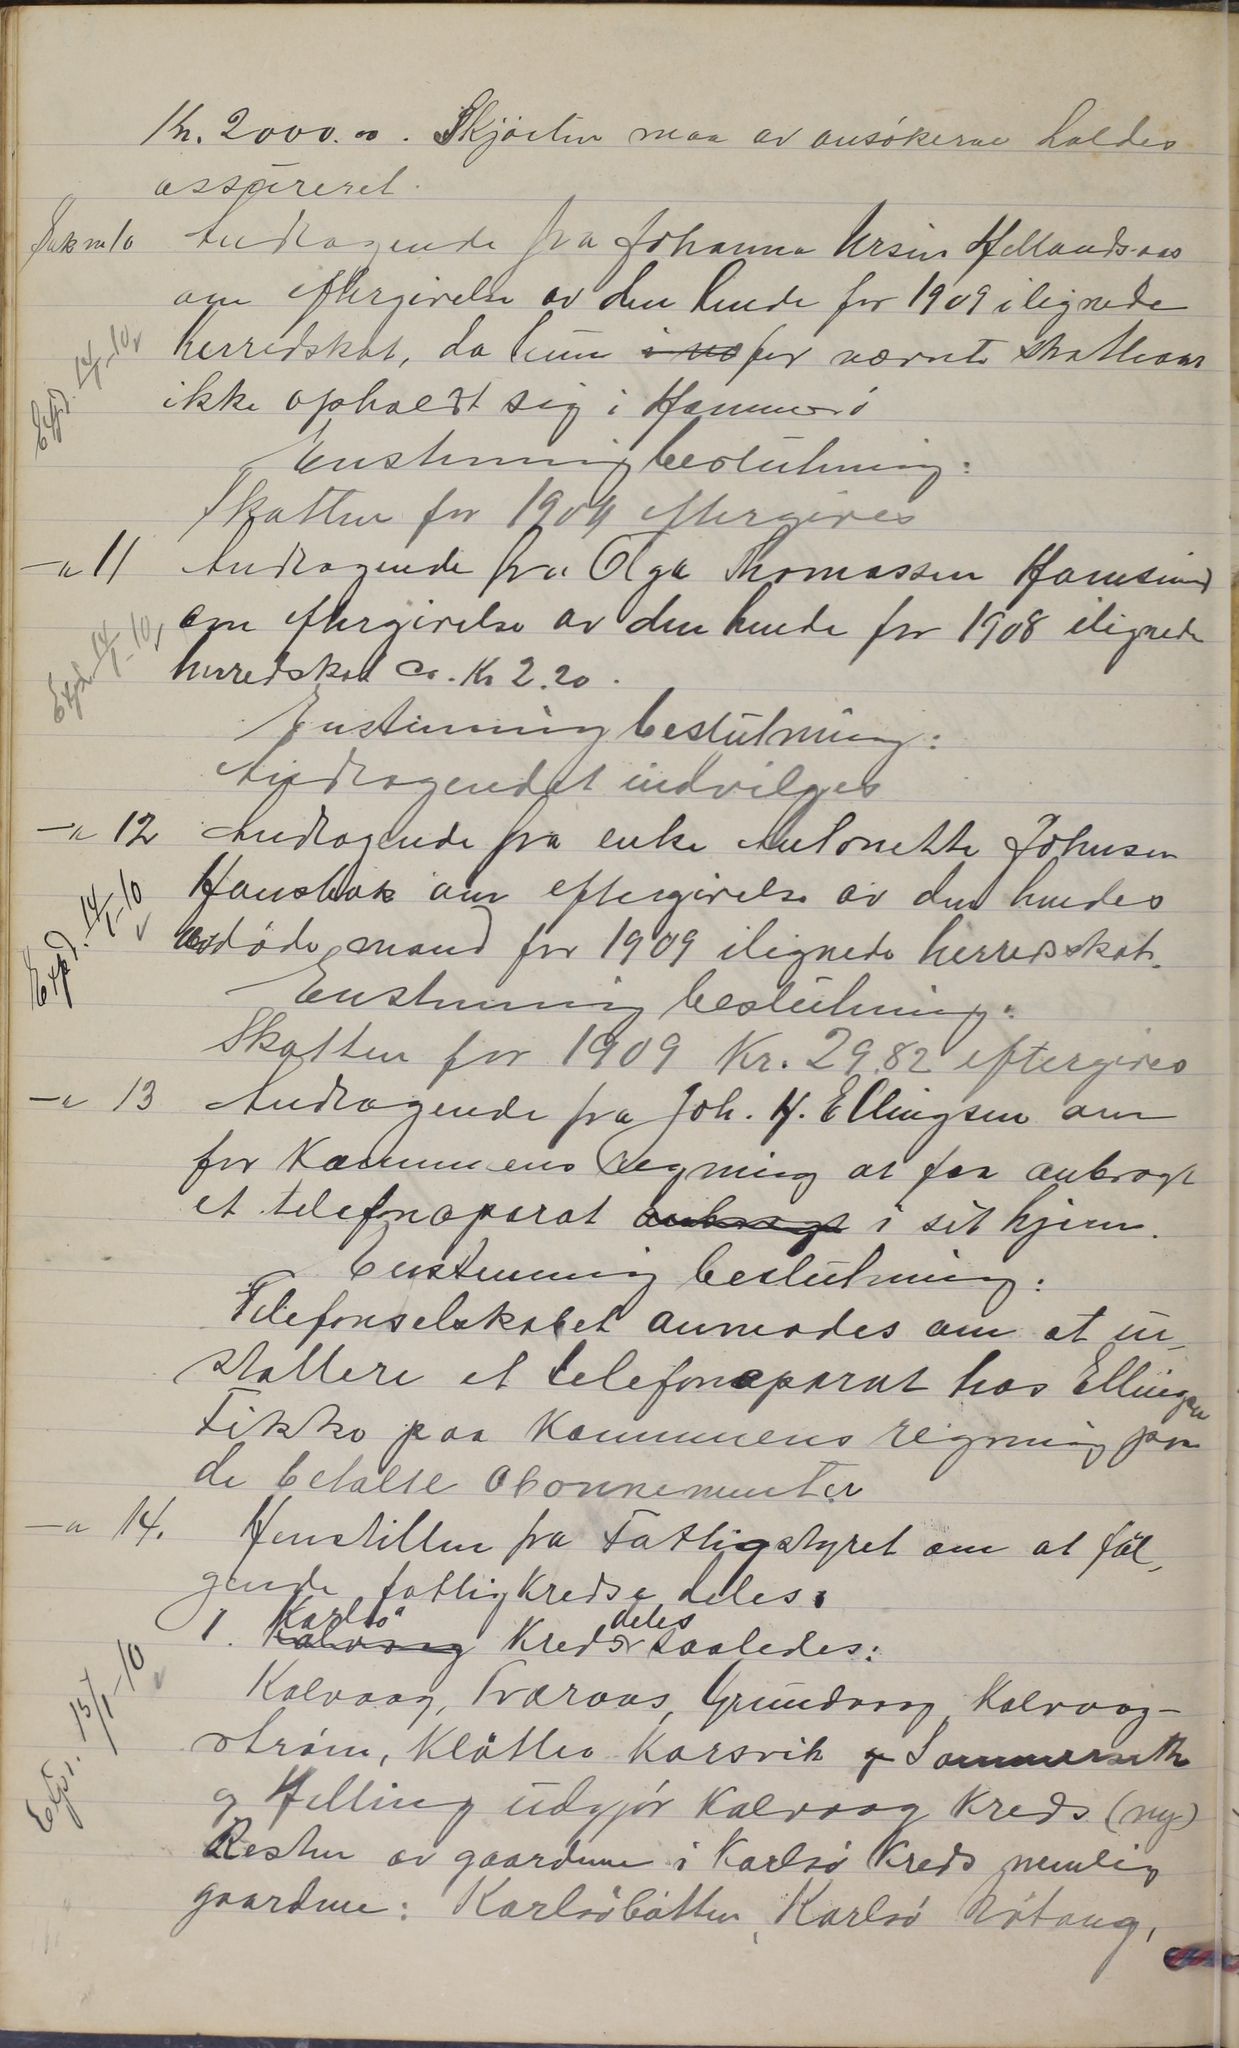 Kr. 2000.00. Skjöiten maa av ansökerne holdes
assureret.
Sak no 10 Andragende fra Johanna Ursin Hellandsaas
om eftergivelse av den hende for 1909 ilignede
herredskat, da hun for nævnte skatteaar
ikke opholdt sig i Hammerö
Enstemmig beslutning:
Skatten for 1909 eftergives
Expd. 14/1-10
-"- 11 Andragende fra Olga Thomassen Hamsund
om eftergivelse av den hende for 1908 ilignede
herredskat ca. Kr 2.20.
Enstemmig beslutning:
Andragendet indvilges
Expd. 14/1-10
-"- 12 Andragende fra enke Antonette Johnsen
Hansbak om eftergivelse av den hendes
avdöde mand for 1909 ilignede herredsskat.
Enstemmig beslutning:
Skatten for 1909 Kr. 29.82 eftergives
Expd. 14/1-10
-"- 13 Andragende fra Joh. H. Ellingsen om
for Kommunens Regning at faa anbragt
et telefonaparat anbragt i sit hjem.
Enstemmig beslutning:
Telefonselskabet anmodes om at in-
stallere et telefonaparat hos Ellingsen
Fikke paa Kommunens regning paa
de betalte abonnementer
-"- 14. Henstillen fra Fattigstyret om at föl-
gende fattigkredse deles.
1. Kalvaag Karlsö Kreds deles saaledes:
Kalvaag, Tværaas, Grundvaag, Kalvaag-
ström, Klötten Korsvik og Sommerseth
og Helling udgjör Kalvaag Kreds (ny)
Resten av gaardene i Karlsö Kreds nemlig
gaardene: Karlsöbotten, Karlsö
Expd. 15/1-10